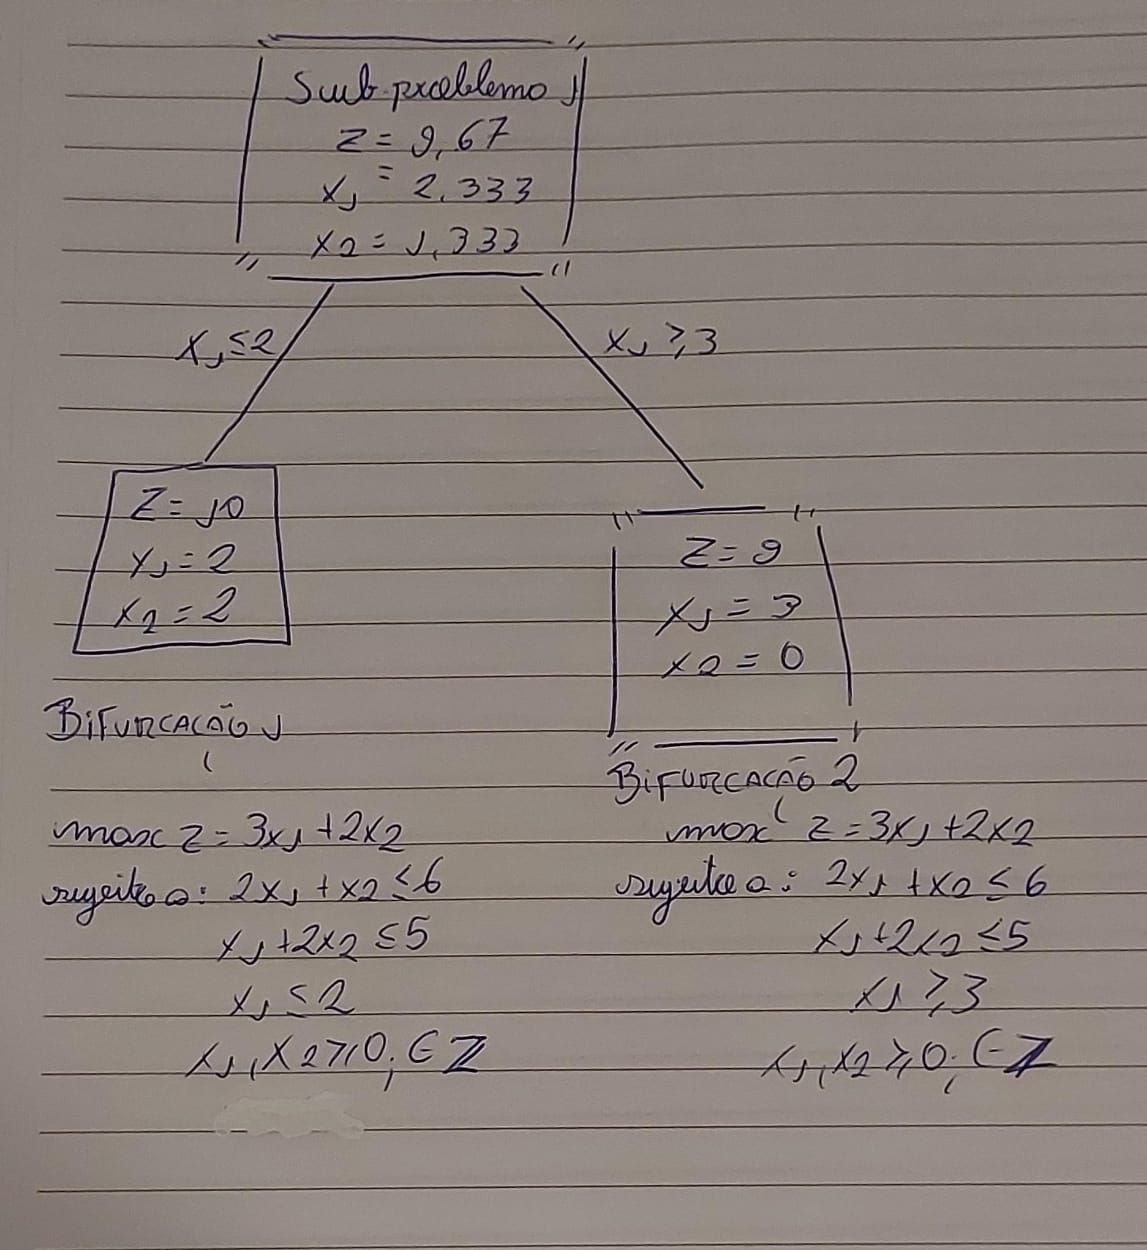 Sub-problema 1
Z = 9,67
x1 = 2,333
x2 = 1,333
x1 ≤ 2
x1 ≥ 3
Z = 10
x1 = 2
x2 = 2
Z = 9
x1 = 3
x2 = 0
BIFURCAÇÃO 1
max z = 3x1 + 2x2
sujeito a: 2x1 + x2 ≤ 6
x1 + 2x2 ≤ 5
x1 ≤ 2
x1, x2 ≥ 0, ∈ Z
BIFURCAÇÃO 2
max z = 3x1 + 2x2
sujeito a: 2x1 + x2 ≤ 6
x1 + 2x2 ≤ 5
x1 ≥ 3
x1, x2 ≥ 0, ∈ Z